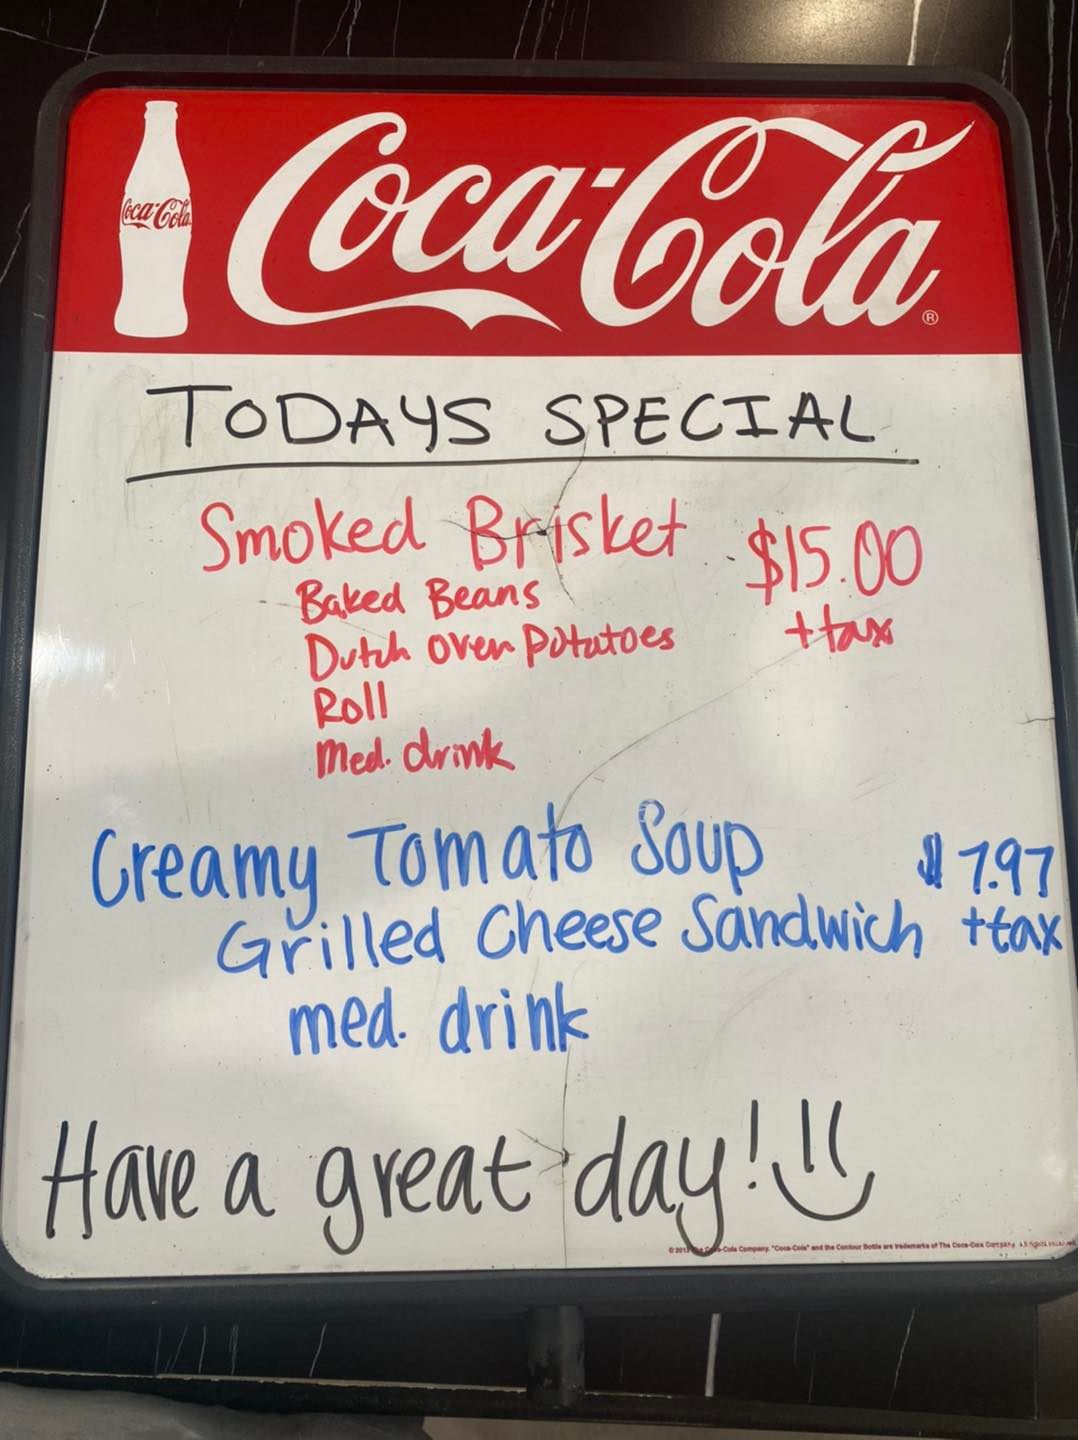 Coca-Cola
Coca-Cola ®
TODAYS SPECIAL
Smoked Brisket $15.00
Baked Beans + tax
Dutch oven Potatoes
Roll
Med. drink
Creamy Tomato Soup $7.97
Grilled Cheese Sandwich + tax
med. drink
Have a great day!
The Coca-Cola Company. "Coca-Cola" and the Contour Bottle are trademarks of The Coca-Cola Company. All rights reserved.